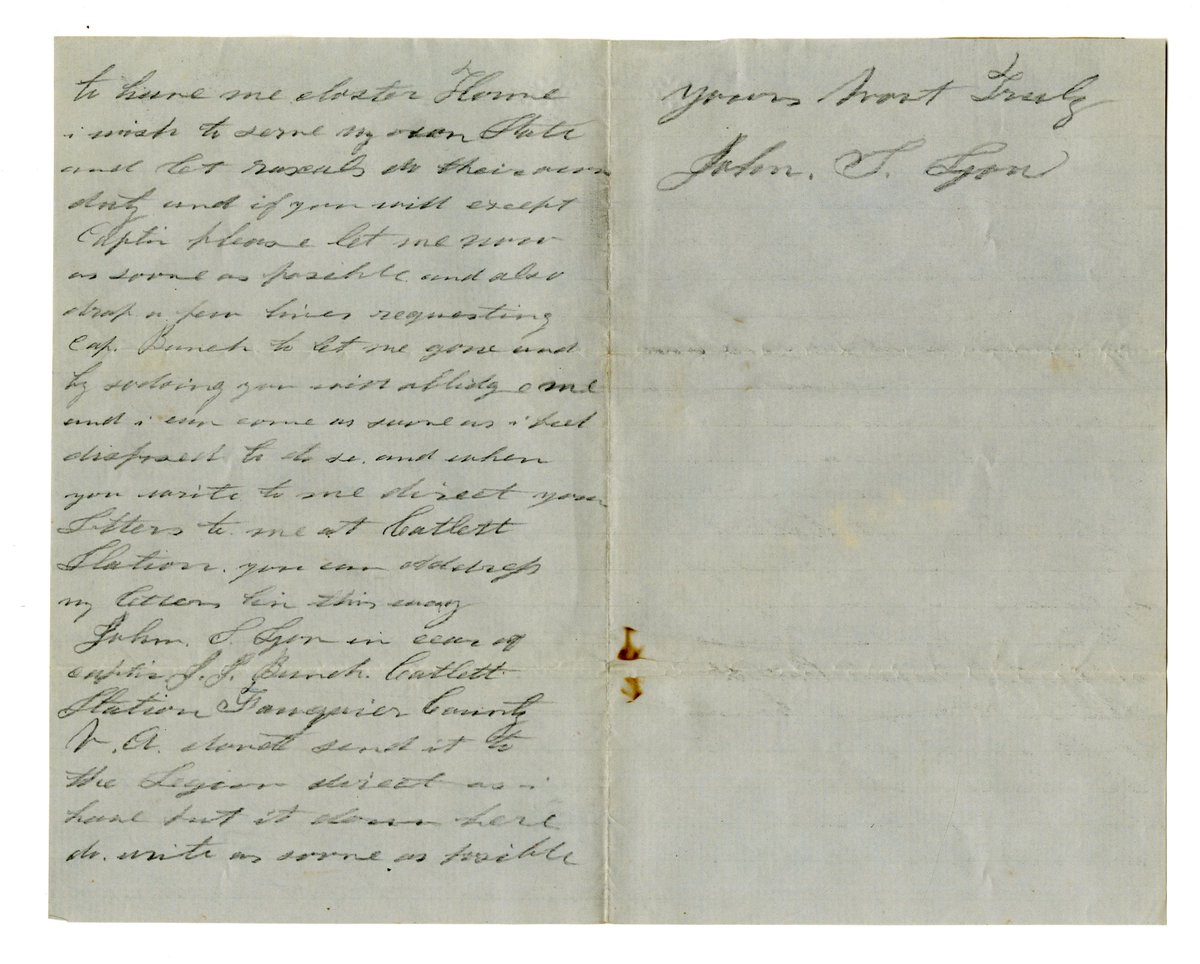 to have me closter Home
i wish to serve my own State
and let raxcals do their own
duty and if you will except
Captin please let me now
as soone as posible and also
drop a few lines requesting
Cap. Bunch to let me gone and
by sodoing you will abbidge me
and i can come as soone as i feel
disposed to do so. and when
you write to me direct your
letters to me at Catlett
Station. you can address
my letters hin this way
John. S. Lyon in cear of
captin J. P. Bunch. Catlett
Station Fauquier County
V. A. dont send it to
the Legion direct as i
have put it down here
do. write as soone as posible
Yours Most Truly
John. S. Lyon